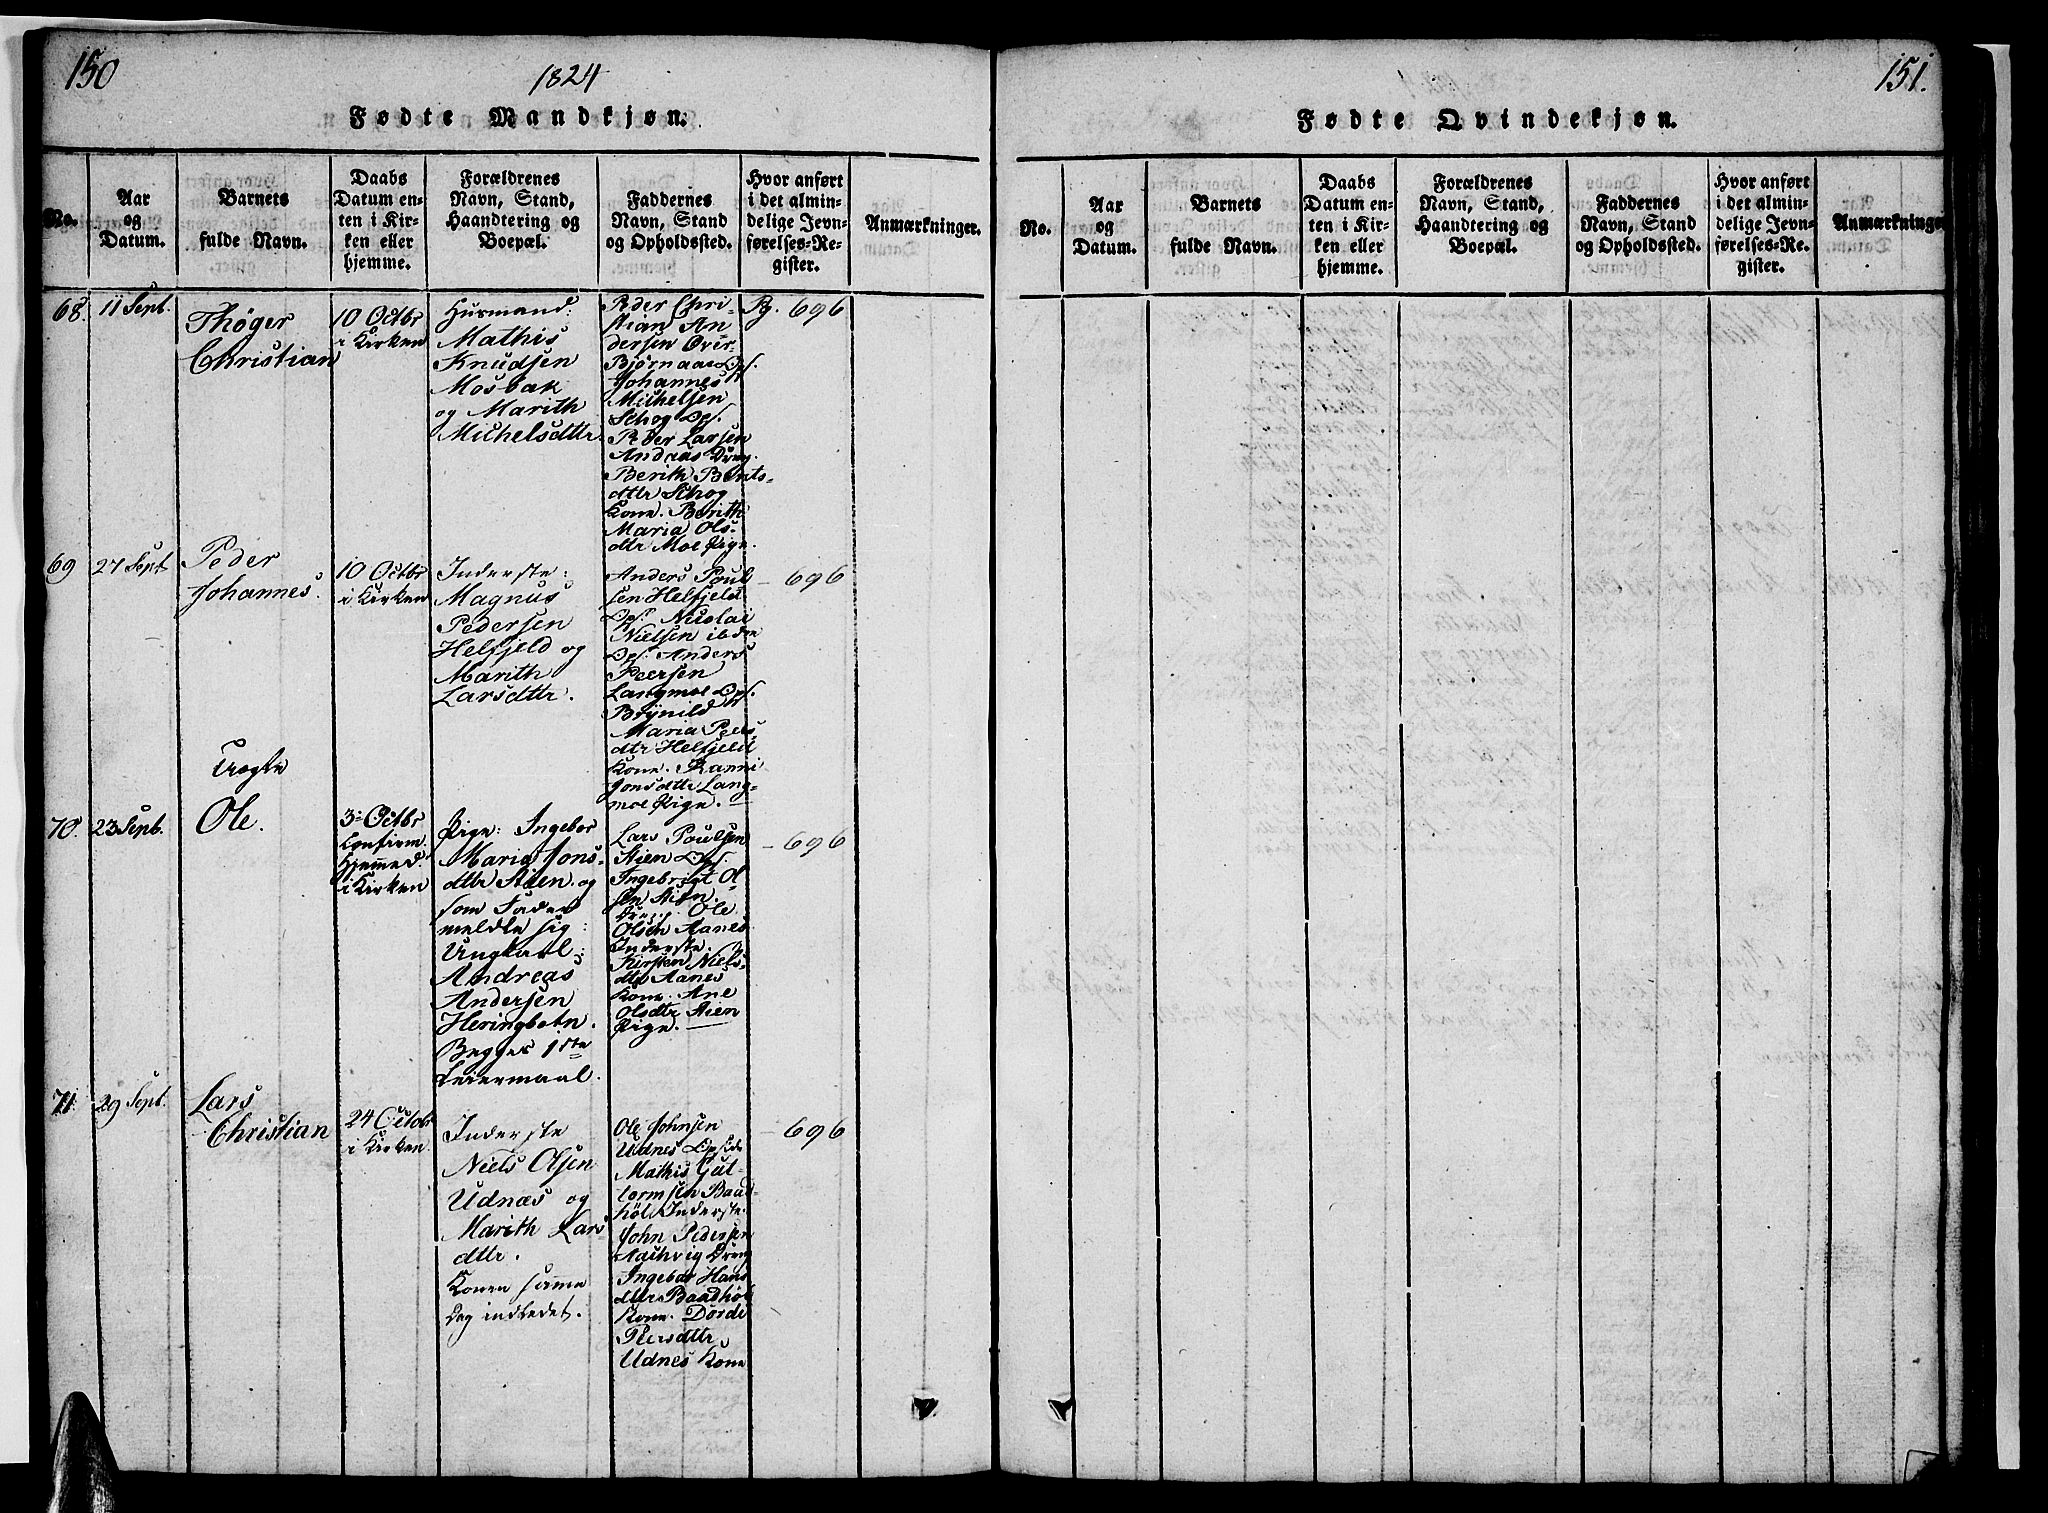 150
1824
151.
Fødte Mandkjøn.
No.
Aar og Datum.
Barnets fulde Navn.
Daabs Datum enten i Kirken eller hjemme.
Forældrenes Navn, Stand, Haandtering og Boepæl.
Faddernes Navn, Stand og Opholdssted.
Hvor anført i det almindelige Jevnførelses-Register.
Anmærkninger.
68.
11 Sept.
Thøger
Christian
10 Octbr
i Kirken
Husmand:
Mathis
Knudsen
Mosbak
og Marith
Michelsdttr.
Peder Chri-
stian An
dersen Over
Bjørnaae Dpf.
Johannes
Michelsen
Schog Dpf.
Peder Larsen
Andaas Dreng.
Berith Bents-
dttr Schog
Kone. Berith
Maria Ols-
dttr Moe Pige.
Pg. 696
69
27 Sept
Peder
Johannes.
10 Octbr
i Kirken
Inderste:
Magnus
Pedersen
Helfjeld og
Marith
Larsdttr.
Anders Poul
sen Helfjeld
Dpf. Nicolai
Nielsen ibden
Dpf. Anders
Peersen
Langmoe Dpf.
Brynild
Maria Peers
dttr Helfjeld
Kone. Ranni
Jonsdttr Lang-
moe Pige.
- 696
Uægte
70.
23 Sept.
Ole.
3de Octbr
Confirm.
Hjemmed.
i Kirken
Pige: Ingebor
Maria Jons-
dttr Stien. og
som Fader
meldte sig:
Ungkarl:
Andreas
Andersen
Heringbotn.
Begges 1ste
Leiermaal.
Lars Poulsen
Stien Dpf.
Ingebrigt Ol-
sen Stien.
Dreng. Ole
Olsen Aanes
Inderste.
Kirsten Niels-
dttr Aanes
Kone. Ane
Olsdttr Stien
Pige.
- 696
71.
29 Sept.
Lars
Christian
24 Octobr
i Kirken
Inderste
Niels Olsen
Udnæs og
Marith Lars
dttr.
Konen samme
Dag indledet.
Ole Johnsen
Udnes
Mathis Gut-
tormsen Baad-
høl Inderste.
John Pedersen
Dreng
Ingebor Hans
dttr Baadhøl
Kone. Dorde
Peersdttr
Udnes Kone
- 696
Fødte Qvindekjøn.
No.
Aar og Datum.
Barnets fulde Navn.
Daabs Datum enten i Kirken eller hjemme.
Forældrenes Navn, Stand, Haandtering og Boepæl.
Faddernes Navn, Stand og Opholdssted.
Hvor anført i det almindelige Jevnførelses-Register.
Anmærkninge